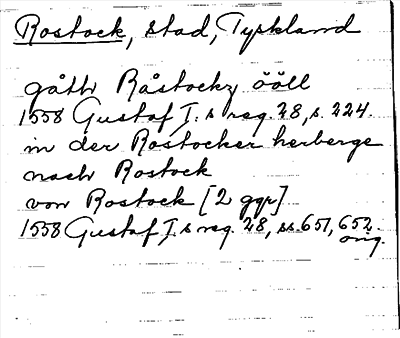 Rostock, stad, Tyskland
gått Råstockz ööll
1558 Gustaf I:s reg. 28, s. 224.
in der Rostocker herberge
nach Rostock
von Rostock [2 ggr]
1558 Gustaf I:s reg. 28, ss. 651, 652.
orig.